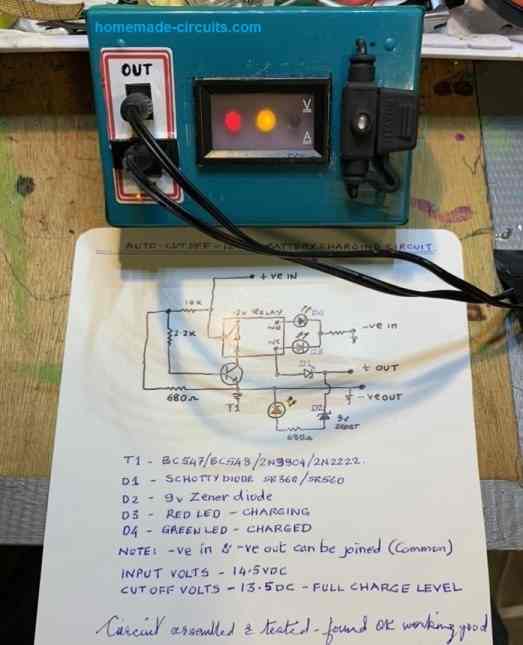 homemade-circuits.com
OUT
V
A
AUTO-CUTOFF- BATTERY CHARGING CIRCUIT
+ve IN
10K
12V RELAY
D4
-ve in
2.2K
N/C
D3
D1
+ OUT
680Ω
T1
D2
-VEOUT
9V
680Ω
T1 - BC547/BC548/2N3904/2N2222.
D1 - SCHOTTY DIODE SR360/SR560
D2 - 9v Zener diode
D3 - RED LED - CHARGING
D4 - GREEN LED - CHARGED
NOTE: -ve in & -ve out can be joined (Common)
INPUT VOLTS - 14.5VDC
CUTOFF VOLTS - 13.5DC - FULL CHARGE LEVEL
Circuit assembled & tested - found OK working good